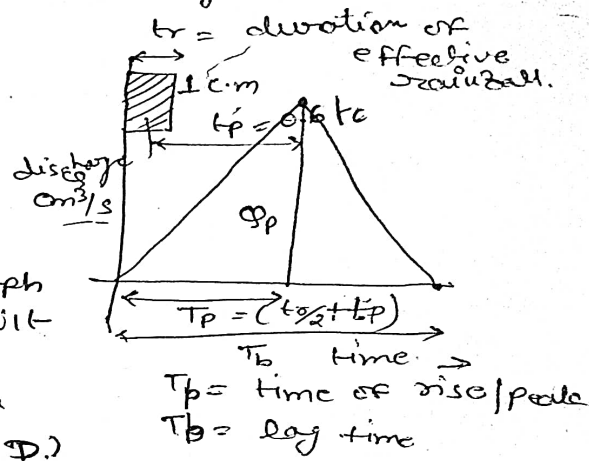 tr = duration of
effective
rainfall.
1 c.m
t'p = 0.6 tc
discharge
m³/s
Qp
ph
Tp = (tr/2 + t'p)
Tb time →
Tp = time of rise/peak
Tb = lag time
D.)